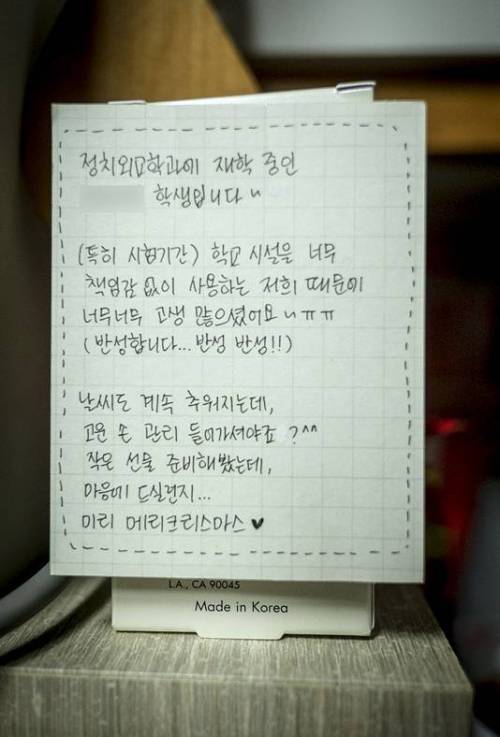 정치외교학과에 재학 중인
학생입니다~
(특히 시험기간) 학교 시설을 너무
책임감 없이 사용하는 저희 때문에
너무너무 고생 많으셨어요~ㅠㅠ
(반성합니다... 반성 반성!!)
날씨도 계속 추워지는데,
고운 손 관리 들어가셔야죠?^^
작은 선물 준비해봤는데,
마음에 드실런지...
미리 메리크리스마스♥
L.A., CA 90045
Made in Korea